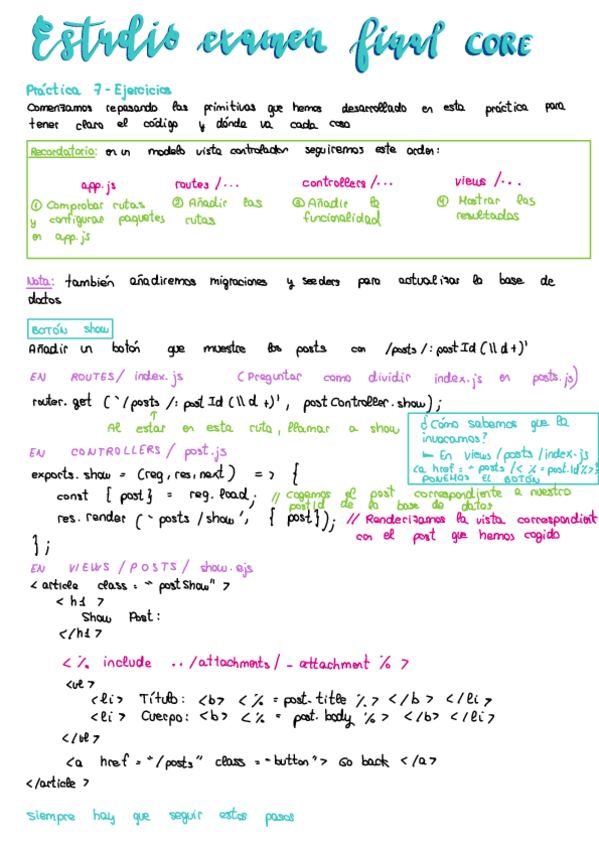 Estudio examen final CORE
Práctica 7 - Ejercicios
Comenzamos repasando las primitivas que hemos desarrollado en esta práctica para
tener claro el código y dónde va cada cosa
Recordatorio: en un modelo vista controlador seguiremos este orden:
app.js routes /... controllers /... views /...
① Comprobar rutas ② Añadir las ③ Añadir la ④ Mostrar los
y configurar paquetes rutas funcionalidad resultados
en app.js
Nota: también añadiremos migraciones y seeders para actualizar la base de
datos
BOTÓN show
Añadir un botón que muestre los posts con /posts/:postId(\\d+)'
EN ROUTES/ index.js (Preguntar como dividir index.js en posts.js)
router.get (`/posts /: post Id (\\d +)', postController.show);
Al estar en esta ruta, llamar a show
¿Cómo sabemos que la
invocamos?
En views/posts/index.js
<a href = "posts/<%=post.id%>
PONEMOS EL BOTÓN
EN CONTROLLERS / post.js
exports.show = (req, res, next) => {
const { post } = req.load; // cogemos el post correspondiente a nuestro
postId de la base de datos
res.render (`posts /show', { post}); // Renderizamos la vista correspondient
con el post que hemos cogido
};
EN VIEWS / POSTS / show.ejs
< article class = "postShow" >
< h1 >
Show Post:
</h1 >
< % include ../attachments/_attachment % >
<ul >
<li> Título: <b> < % = post.title % > </b > </li >
<li> Cuerpo: <b> < % = post.body % > </b> </li>
</ul >
<a href = "/posts" class = "button"> Go back </a>
</article >
Siempre hay que seguir estos pasos